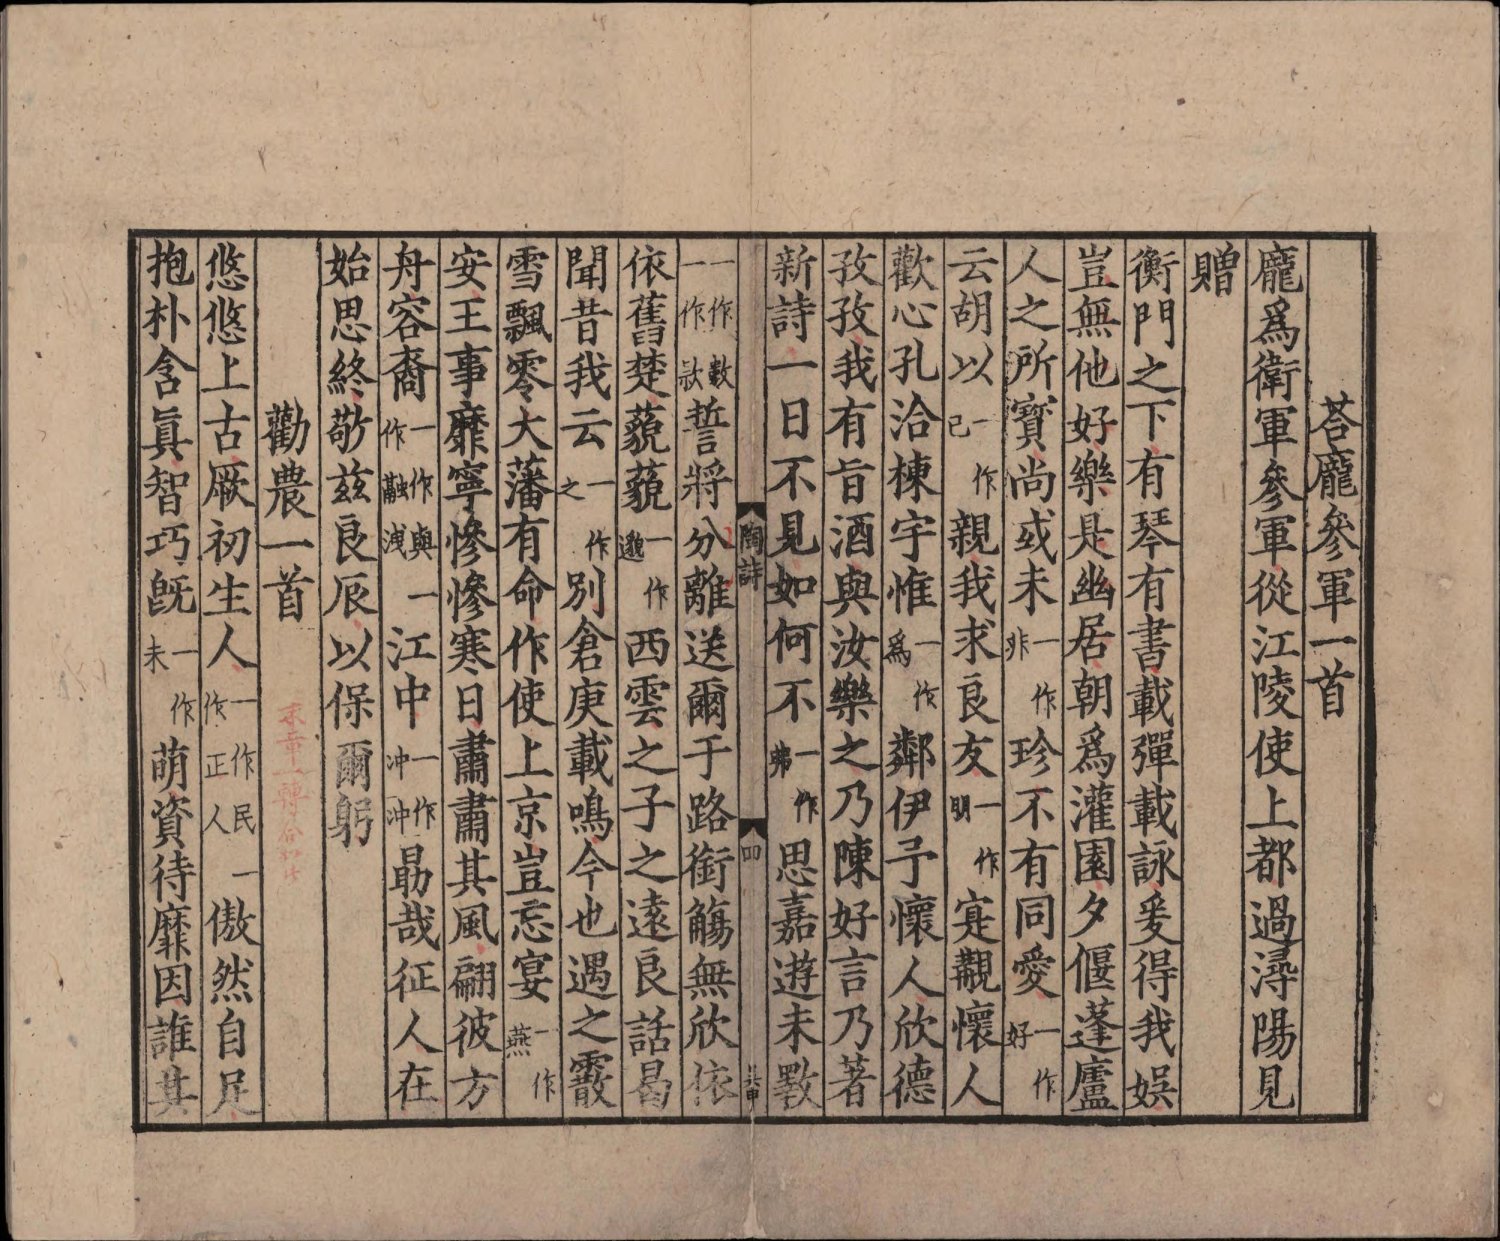 荅龐參軍一首
龐爲衛軍參軍從江陵使上都過潯陽見
贈
衡門之下有琴有書載彈載詠爰得我娱
豈無他好樂是幽居朝爲灌園夕偃蓬廬
人之所寳尚或未一作非珍不有同愛一作好
云胡以一作已親我求良友一作明寔覯懷人
歡心孔洽棟宇惟一作爲鄰伊予懷人欣德
孜孜我有旨酒與汝樂之乃陳好言乃著
新詩一日不見如何不一作弗思嘉遊未斁
陶詩 四
一作數一作欻誓將分離送爾于路銜觴無欣依
依舊楚藐藐一作邈西雲之子之遠良話曷
聞昔我云一作之別倉庚載鳴今也遇之霰
雪飄零大藩有命作使上京豈忘宴一作燕
安王事靡寧慘慘寒日肅肅其風翩彼方
舟容裔一作與一作融洩江中一作冲冲勗哉征人在
始思終敬兹良辰以保爾躬
勸農一首
悠悠上古厥初生人一作民一作正人傲然自足
抱朴含眞智巧旣一作未萌資待靡因誰其